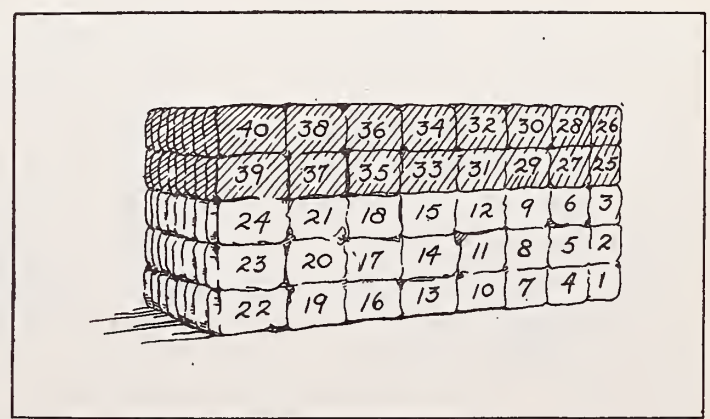 40 38 36 34 32 30 28 26
39 37 35 33 31 29 27 25
24 21 18 15 12 9 6 3
23 20 17 14 11 8 5 2
22 19 16 13 10 7 4 1